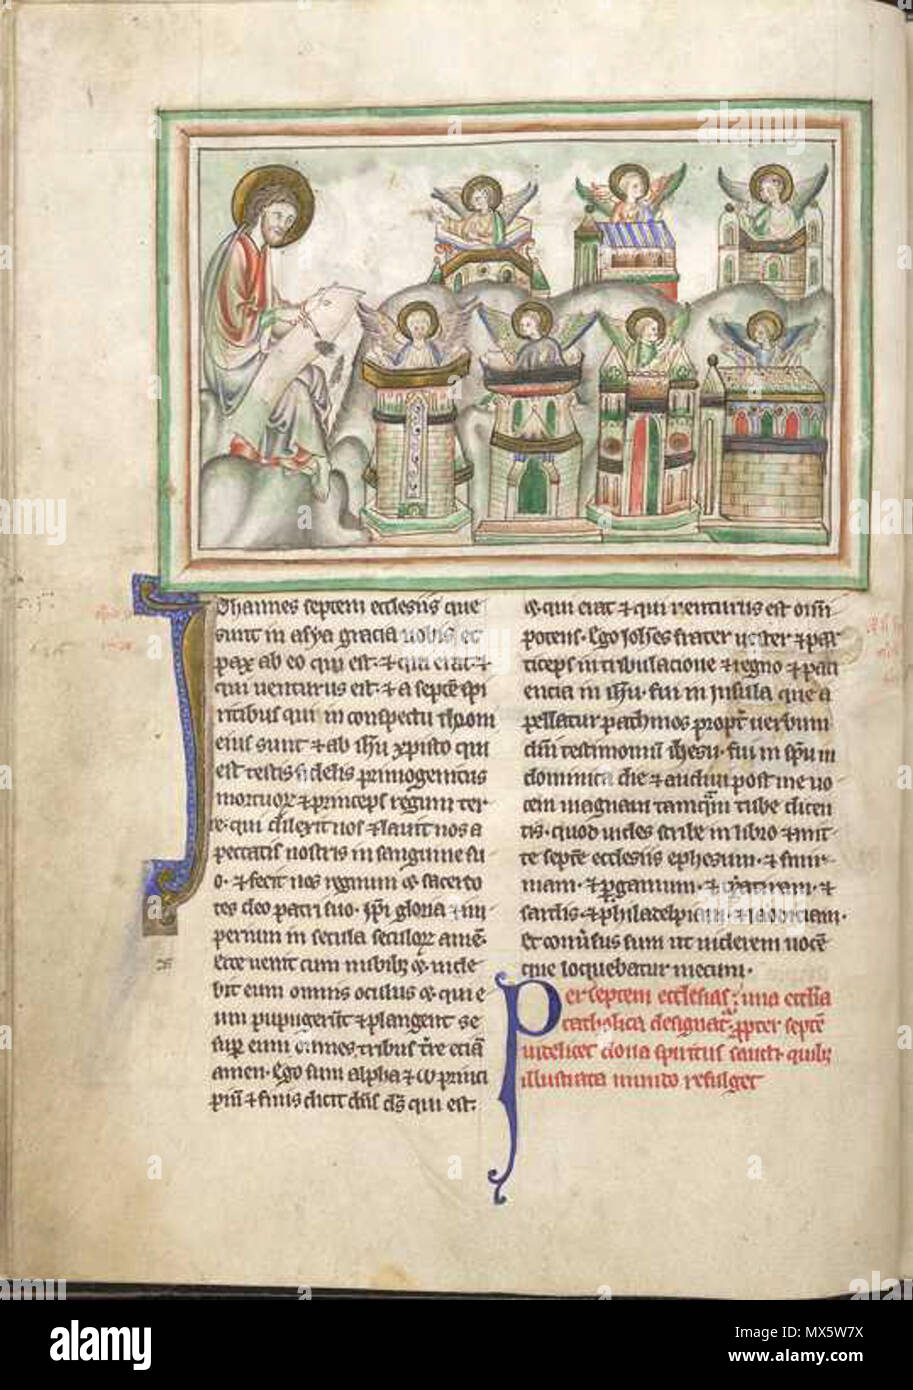 Johannes septem ecclesiis que
sunt in asya gracia uobis et
pax ab eo qui est ⁊ qui erat ⁊
qui uenturus est ⁊ a septē spi
ritibus qui in conspectu throni
eius sunt ⁊ ab ihū xp̄isto qui
est testis fidelis primogenitus
mortuoꝝ ⁊ princeps regum ter
re. qui dilexit nos ⁊ lauit nos a
peccatis nostris in sanguine su
o. ⁊ fecit nos regnum sacerdo
tes deo patri suo. ip̄i gloria ⁊ im
perium in secula seculoꝝ amē.
Ecce uenit cum nubibꝫ uide
bit eum omnis oculus qui e
um pupugerūt ⁊ plangent se
sup̄ eum omnes tribus tr̄e eciā
amen. Ego sum alpha ⁊ ω princi
piū ⁊ finis dicit dn̄s ds̄ qui est.
qui erat ⁊ qui uenturus est om̄i
potens. Ego ioh̄es frater uester ⁊ par
ticeps in tribulacione ⁊ regno ⁊ pati
encia in ihū. fui in insula que a
pellatur pathmos propt̄ uerbum
dn̄i testimoniū ihesu. fui in sp̄u in
dominica die ⁊ audiui post me uo
cem magnam tamquā tube dicen
tis. quod uides scribe in libro ⁊ mit
te septē ecclesiis ephesum. ⁊ smir
nam. ⁊ ꝑgamum. ⁊ tyatiram. ⁊
sardis. ⁊ philadelphiam. ⁊ laodiciam.
Et conūsus sum ut uiderem uocē
que loquebatur mecum.
Per septem ecclesias. una eccl̄ia
catholica designat̄. ꝓpter septē
uidelicet dona spiritus sancti quibꝫ
illustrata mundo refulget
alamy
MX5W7X
www.alamy.com